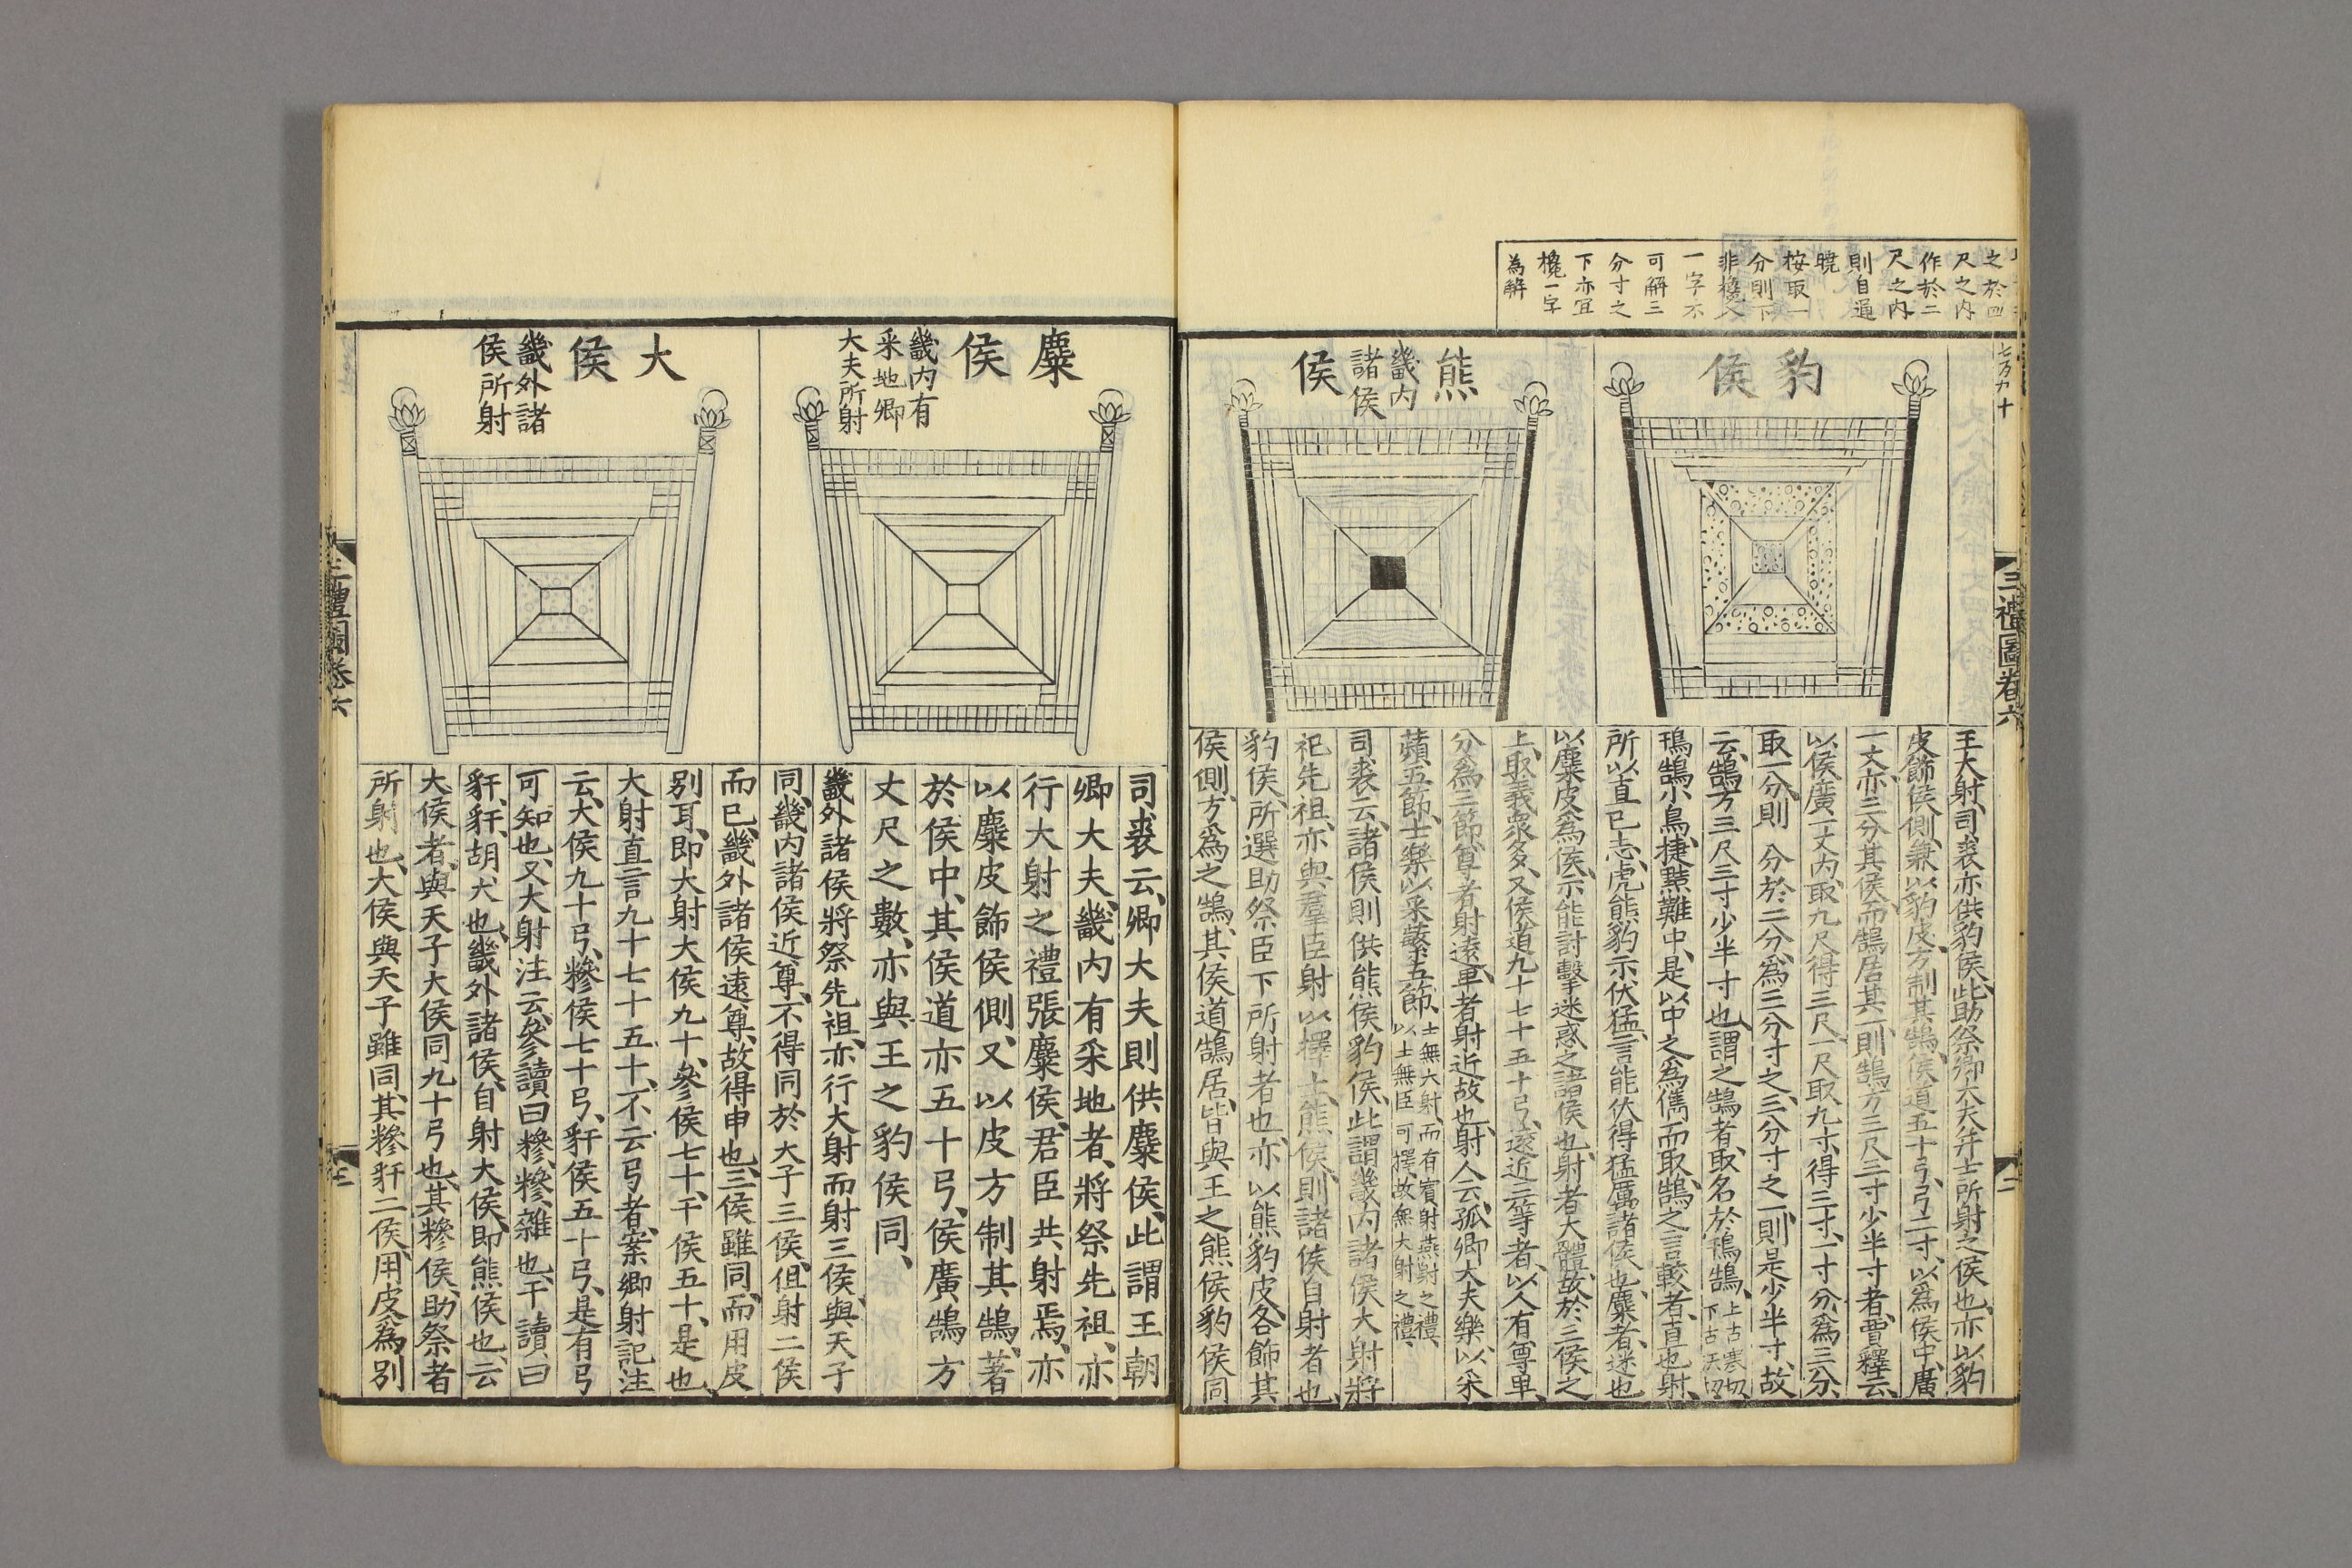 之於四
尺之内
作於二
尺之内
則自通
曉
按取一
分則下
非欃文
一字不
可解三
分寸之
下亦宜
欃一字
為解
三禮圖卷六
二
豹侯
熊侯
畿内
諸侯
王大射司裘亦供豹侯、此助祭卿大夫并士所射之侯也、亦以豹
皮飾侯側、兼以豹皮方制其鵠、侯道五十弓、弓二寸、以爲侯中、廣
一丈、亦三分其侯、而鵠居其一、則鵠方三尺三寸少半寸者、賈釋云、
以侯廣一丈内、取九尺得三尺、一尺取九寸、得三寸、一寸分爲三分、
取一分、則 分於二分爲三分寸之、三分寸之一、則是少半寸、故
云、鵠方三尺三寸少半寸也、謂之鵠者、取名於鳱鵠、上古寒切
下古沃切
鳱鵠小鳥、捷黠難中、是以中之爲儁、而取鵠之言較者、直也、射、
所以直已志、虎熊豹示伏猛、言能伏得猛厲諸侯也、麋者、迷也
以麋皮爲侯、示能討擊迷惑之諸侯也、射者大體、故於三侯之
上、取義衆多、又侯道九十七十五十弓、遠近三等者、以人有尊卑、
分爲三節、尊者射遠、卑者射近故也、射人云、孤卿大夫樂、以采
蘋五節、士樂以采蘩五節、士無大射、而有賓射燕射之禮、
以士無臣 可擇、故無大射之禮、
司裘云、諸侯則供熊侯豹侯、此謂畿内諸侯大射、將
祀先祖、亦與羣臣射以擇士、熊侯、則諸侯自射者也、
豹侯、所選助祭臣下所射者也、亦以熊豹皮各飾其
侯側、方爲之鵠、其侯道鵠居、皆與王之熊侯豹侯同
麋侯
畿内有
采地卿
大夫所射
大侯
畿外諸
侯所射
司裘云、卿大夫則供麋侯、此謂王朝
卿大夫、畿内有采地者、將祭先祖、亦
行大射之禮張麋侯、君臣共射焉、亦
以麋皮飾侯側、又以皮方制其鵠、著
於侯中、其侯道亦五十弓、侯廣鵠方
丈尺之數、亦與王之豹侯同、
畿外諸侯將祭先祖、亦行大射而射三侯、與天子
同、畿内諸侯近尊、不得同於大子三侯、但射二侯
而已、畿外諸侯遠尊、故得申也、三侯雖同、而用皮
別耳、即大射大侯九十、參侯七十、干侯五十、是也、
大射直言九十七十五十、不云弓者、案鄉射記注
云、大侯九十弓、糝侯七十弓、豻侯五十弓、是有弓
可知也、又大射注云、參讀曰糝、糝、雜也、干讀曰
豻、豻、胡犬也、畿外諸侯、自射大侯、即熊侯也、云
大侯者、與天子大侯同九十弓也、其糝侯、助祭者
所射也、大侯與天子雖同、其糝豻二侯、用皮爲別
三禮圖卷六